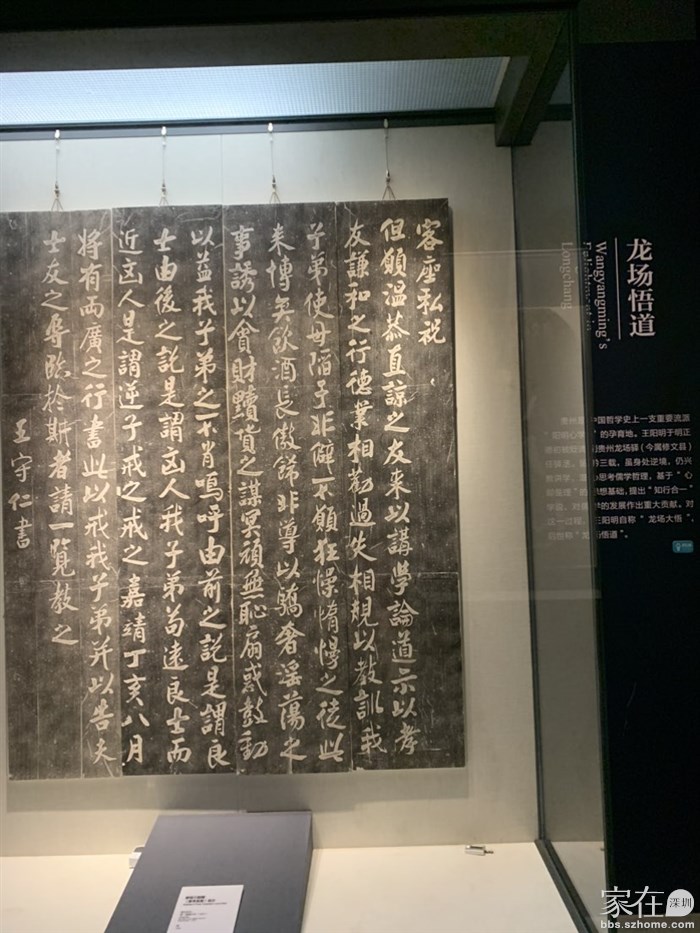 客座私祝
但願溫恭直諒之友来以講學論道示以孝
友謙和之行德業相勸過失相規以教訓我
子弟使毋陷于非僻不願狂懆惰慢之徒此
来博奕飲酒長傲飾非導以驕奢淫蕩之
事誘以貪財黷貨之謀冥頑無恥扇惑鼓動
以益我子弟之不肖嗚呼由前之説是謂良
士由後之説是謂凶人我子弟苟遠良士而
近凶人是謂逆子戒之戒之嘉靖丁亥八月
將有兩廣之行書此以戒我子弟并以告夫
士友之辱臨於斯者請一覽教之
王守仁書
龙场悟道
Wangyangming's
Longchang
贵州是 中国哲学史上一支重要流派
"阳明心学"的孕育地。王阳明于明正
贵州龙场驿（今属修文县）
三载，虽身处逆境，仍兴
思考儒学哲理，基于"心
思想基础，提出"知行合一"
的发展作出重大贡献。对
这一过程，王阳明自称"龙场大悟"，
后世称"龙场悟道"。
家在深圳
bbs.szhome.com